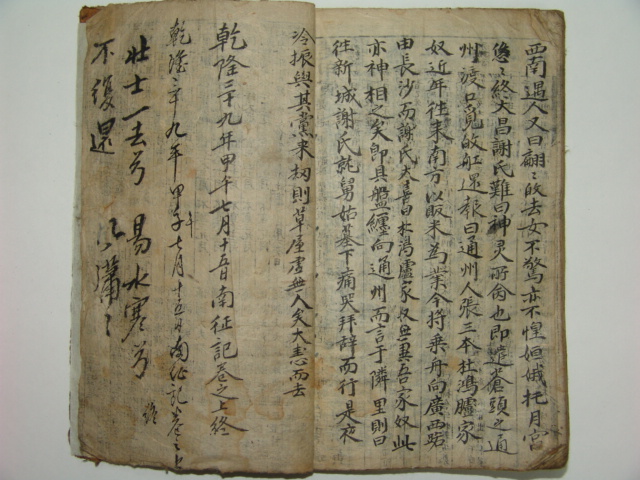 西南遇人又曰翩〻故去女不驚亦不惶姮娥托月宮
終大昌謝氏難曰神灵所命也即遣蒼頭之通
州渡口覓故舡還報曰通州人張三本杜鴻臚家
奴近年徃来南方以販米為業今將乘舟向廣西路
由長沙而謝氏大喜曰杜鴻臚家奴無異吾家奴此
亦神相之矣卽具盤纏向通州而言于隣里則曰
徃新城謝氏詣舅姑墓下痛哭拜辞而行是夜
冷振與其黨来刼則草屋虛無人矣大恚而去
乾隆三十九年甲午七月十五日南征記卷之上終
乾隆三十九年甲午七月十五日南征記卷之上
壮士一去兮 易水寒兮
不復還 瀟〻